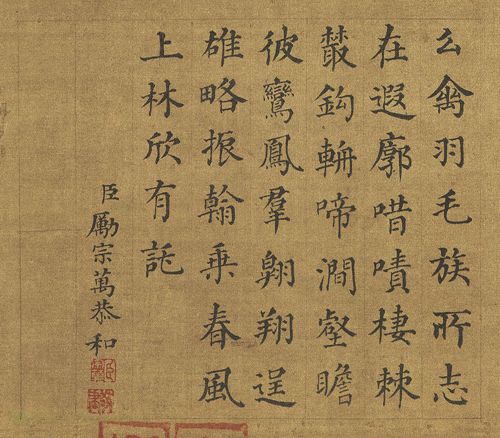 幺禽羽毛族所志
在遐廓唶嘖棲棘
叢鈎輈啼澗壑瞻
彼鸞鳳羣翱翔逞
雄略振翰乘春風
上林欣有託
臣勵宗萬恭和